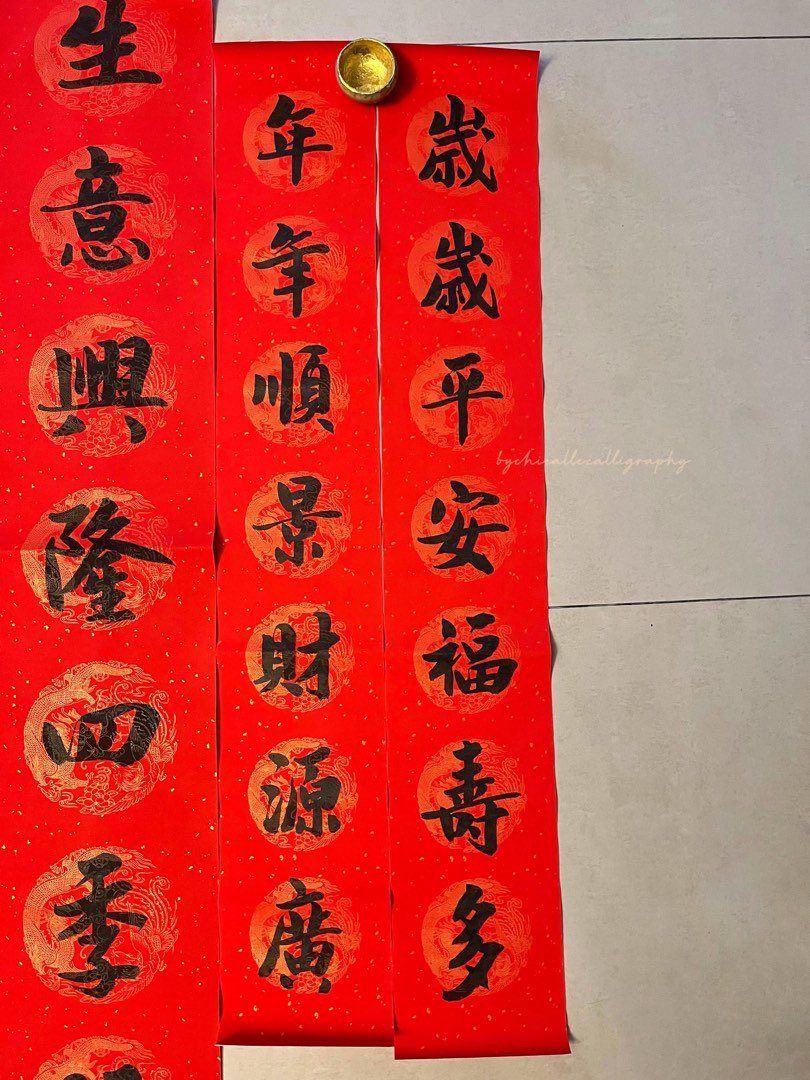 歲歲平安福壽多
年年順景財源廣
生意興隆四季
bychicallezalligraphy